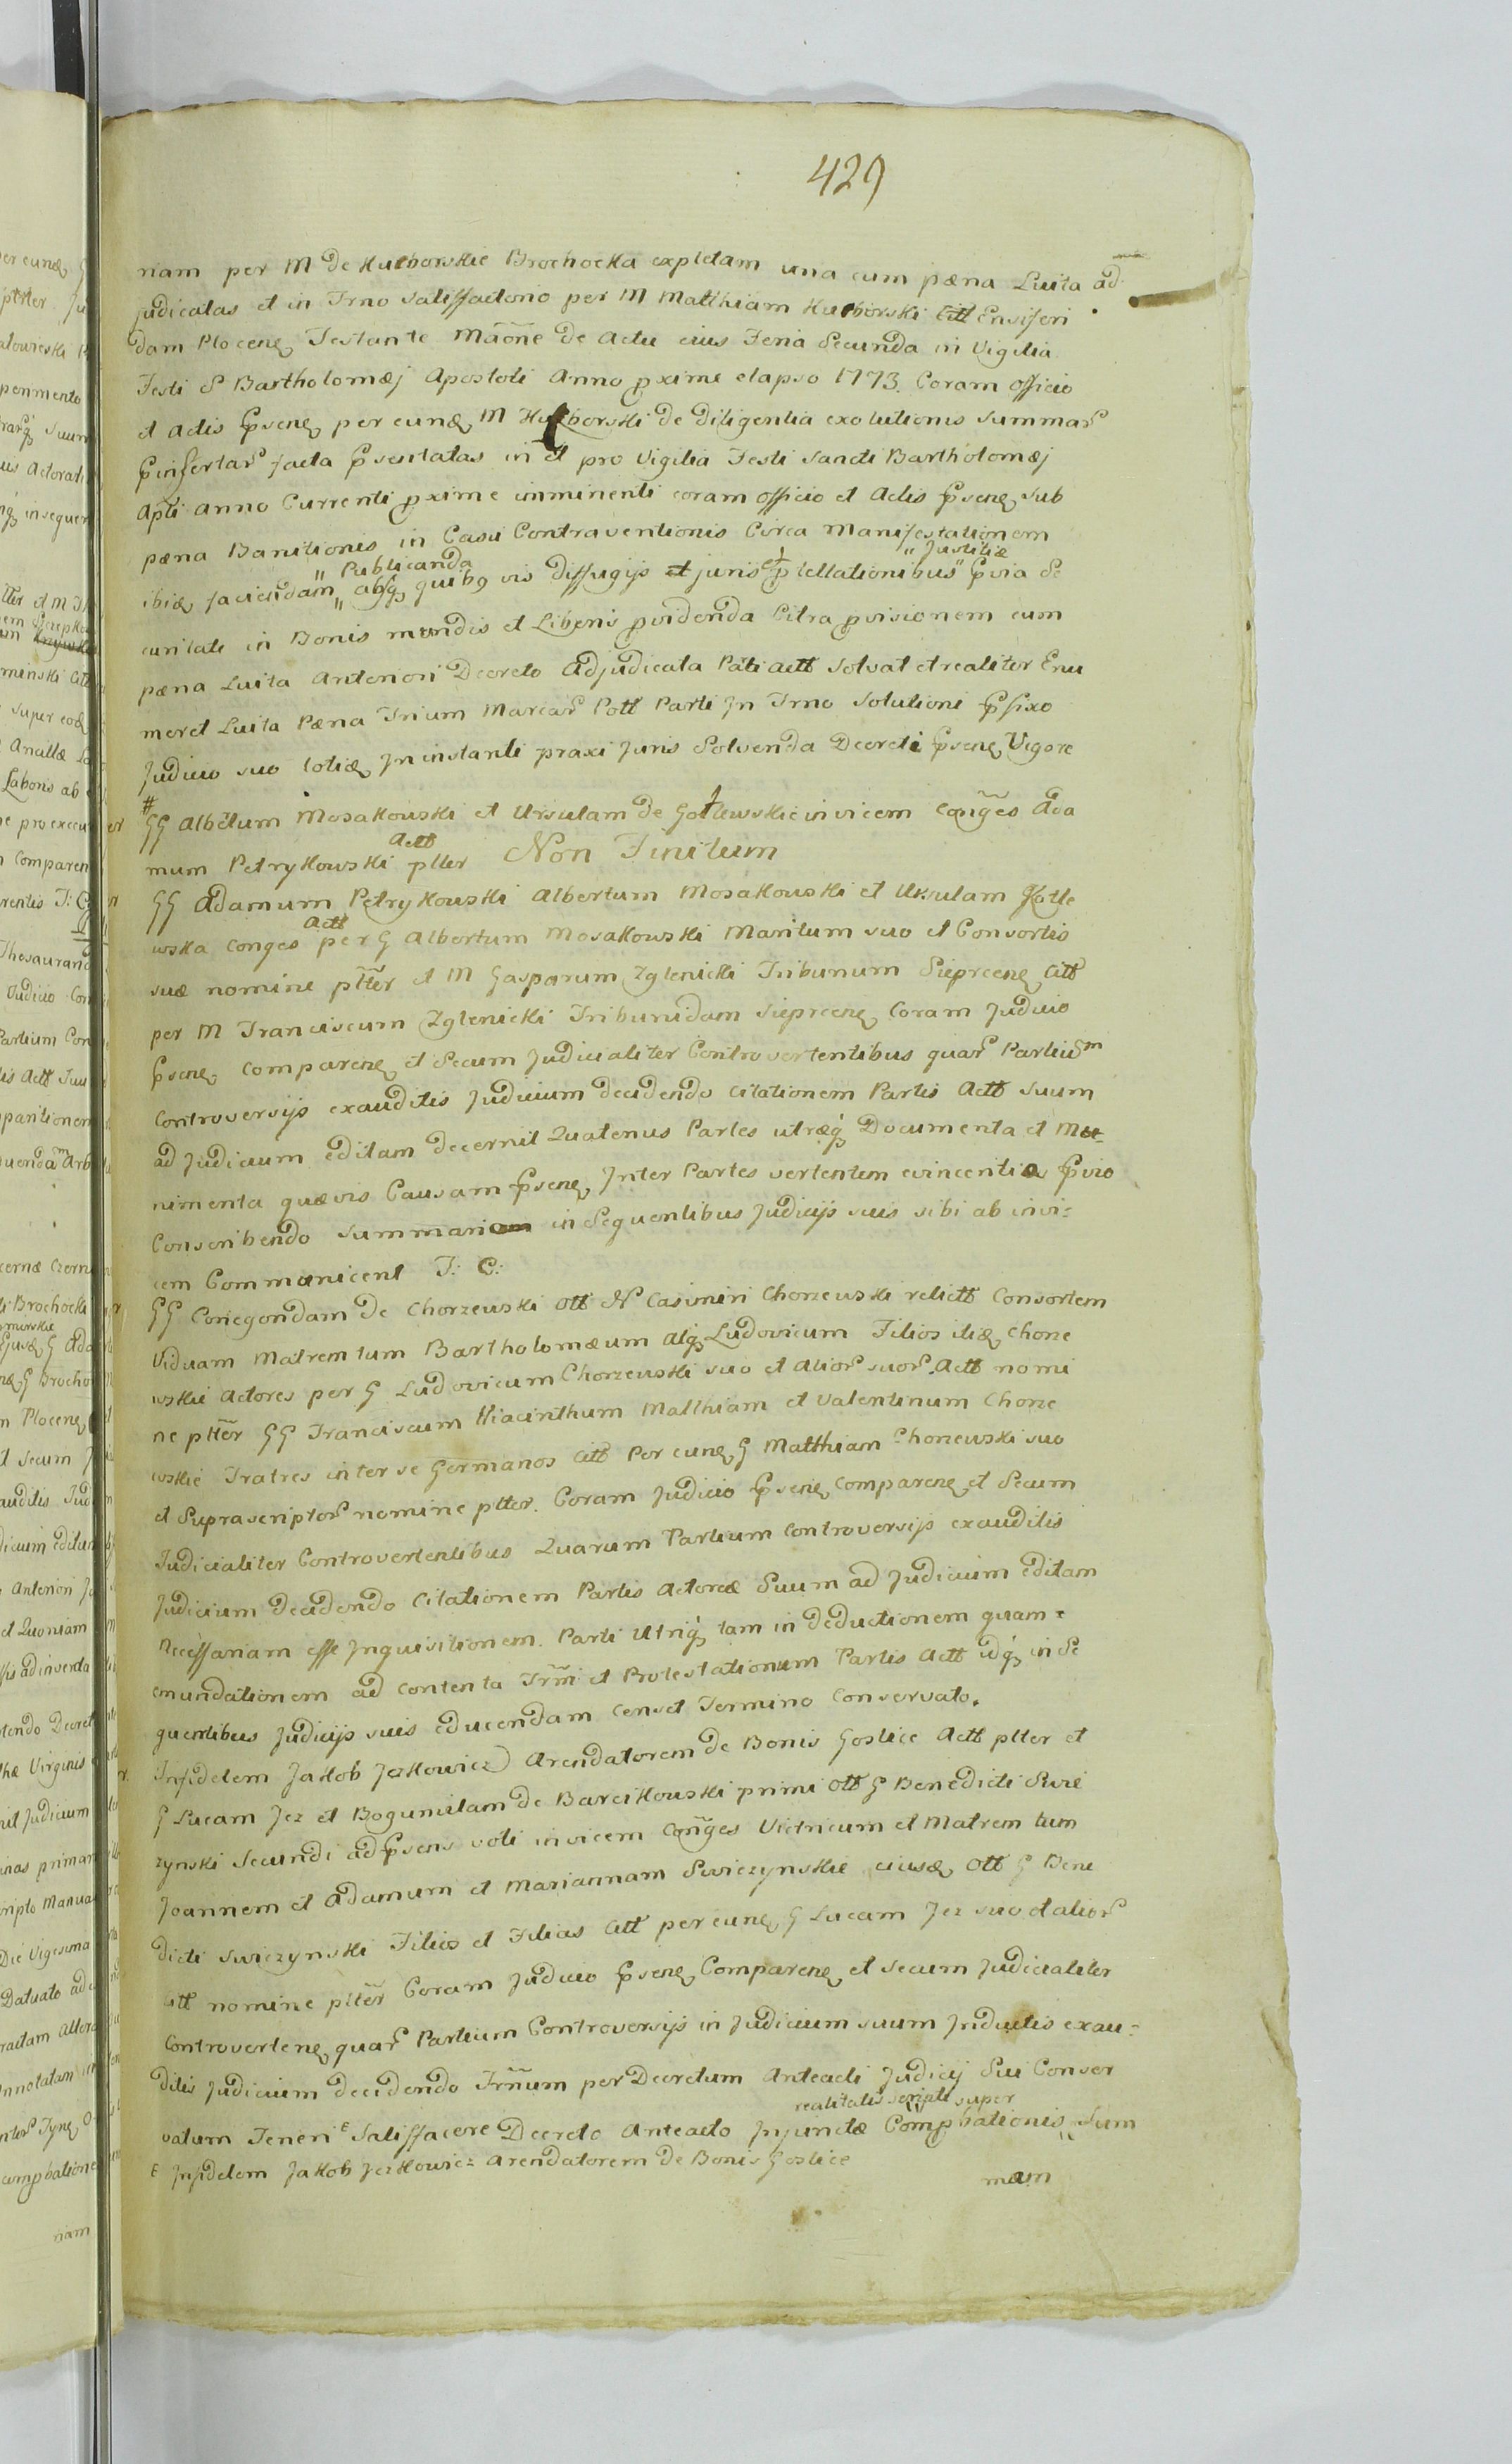 429
nam per M de Kucborskie Brochocka expletam una cum pæna Luita ad
judicatas et in Trno satisfactorio per M Matthiam Kucborski Citt Ensiferi
dam Plocenę Testante Mãone de Actu eius Feria Secunda in Vigilia
Festi S Bartholomæj Apostoli Anno pxime elapso 1773. Coram officio
et Actis Psenę per eundę M Kucborski de diligentia exolutionis Summar
Pinsertar facta Psentatas in et pro Vigilia Festi Sancti Bartholomæj
Apti Anno Currenti pxime imminenti coram officio et Actis Psenę sub
pæna Banitionis in Casu Contraventionis Circa Manifestationem
ibidę faciendam „ Publicanda „ absq quibɔ vis diffugijs et juris et ptellationibus „ Justitiæ „ Pvia Se
curitate in Bonis mundis et Liberis pvidenda Citra pvisionem cum
pæna Luita Anteriori Decreto Adjudicata Pãti Actt Solvat et realiter Enu
meret Luita Pæna Trium Marcar Pott Parti Jn Trno Solutioni Pfixo
Judicio suo totię Jn instanti praxi Juris Solvenda Decreti Psenę Vigore
# GG Albẽtum Mosakowski et Ursulam de Gotlewskie invicem Conges Ada
mum Petrykowski Actt ptter Non Finitum
GG Adamum Petrykowski Albertum Mosakowski et Ursulam Kotle
wska Conges Actt per G Albertum Mosakowski Maritum suo et Consortis
suæ nomine ptter et M Gasparum Zglenicki Tribunum Sieprcenę Citt
per M Franciscum Zglenicki Tribunidam Sieprcenę Coram Judicio
Psenę Comparenę et Secum Judicialiter Controvertentibus quar Partium
Controversijs exauditis Judicium decidendo Citationem Partis Actt Suum
ad Judicium editam decernit Quatenus Partes utræq Documenta et Mu-
nimenta quævis Causam Psenę Jnter Partes vertentem evincentia Pvio
Conscribendo Summario in Sequentibus Judicijs suis sibi ab invi=
cem Communicent T: C:
GG Conegondam de Chorzewski ott N Casimiri Chorzewski relictt Consortem
Viduam Matrem tum Bartholomæum atq Ludovicum Filios itię Chorze
wskie Actores per G Ludovicum Chorzewski suo et Alior suor Actt nomi
ne ptter GG Franciscum Hiacinthum Matthiam et Valentinum Chorze
wskie Fratres inter se Germanos Citt Per eundę G Matthiam Chorzewski suo
et Suprascriptor nomine ptter. Coram Judicio Psenę Comparenę et Secum
Judicialiter Controvertentibus Quarum Partium Controversijs exauditis
Judicium decidendo Citationem Partis Actoreæ Suum ad Judicium Editam
Necessariam esse Jnquisitionem. Parti Utriq tam in deductionem quam =
emundationem ad Contenta Trm̃i et Protestationum Partis Actt idq in Se
quentibus Judicijs suis educendam Censet Termino Conservato.
Infidelem Jakob Jezkowicz Arendatorem de Bonis Goslice Actt ptter et
G Lucam Jez et Bogumilam de Barcikowski primi ott G Benedicti Swie
zynski Secundi ad Psens voti invicem Conges Vitricum et Matrem tum
Joannem et Adamum et Mariannam Swiczynskie eiusdę ott G Bene
dicti Swiczynski Filios et Filias Citt per eundę G Lucam Jez suo et alior
Citt nomine ptter Coram Judicio Psenę Comparenę et Secum Judicialiter
Controvertenę quar Partium Controversijs in Judicium suum Inductis exau=
ditis Judicium decidendo Trñum per Decretum Anteacti Judicij Sui Conser
vatum Teneri E Satisfacere Decreto Anteacto Jnjunctæ Compbationis „ realitatis scripti super „ Sum
E Jnfidelem Jakob Jezkowicz Arendatorem de Bonis Goslice
mam